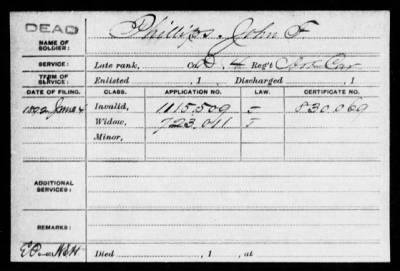 DEAD
NAME OF SOLDIER: Phillips, John F
SERVICE: Late rank, Co. D, 4 Reg't Ark Cav
TERM OF SERVICE: Enlisted , 1 Discharged , 1
DATE OF FILING. CLASS. APPLICATION NO. LAW. CERTIFICATE NO.
1892 June 4 Invalid, 1115.509 830.060
Widow, 723.011
Minor,
ADDITIONAL SERVICES:
REMARKS:
Died , 1 , at